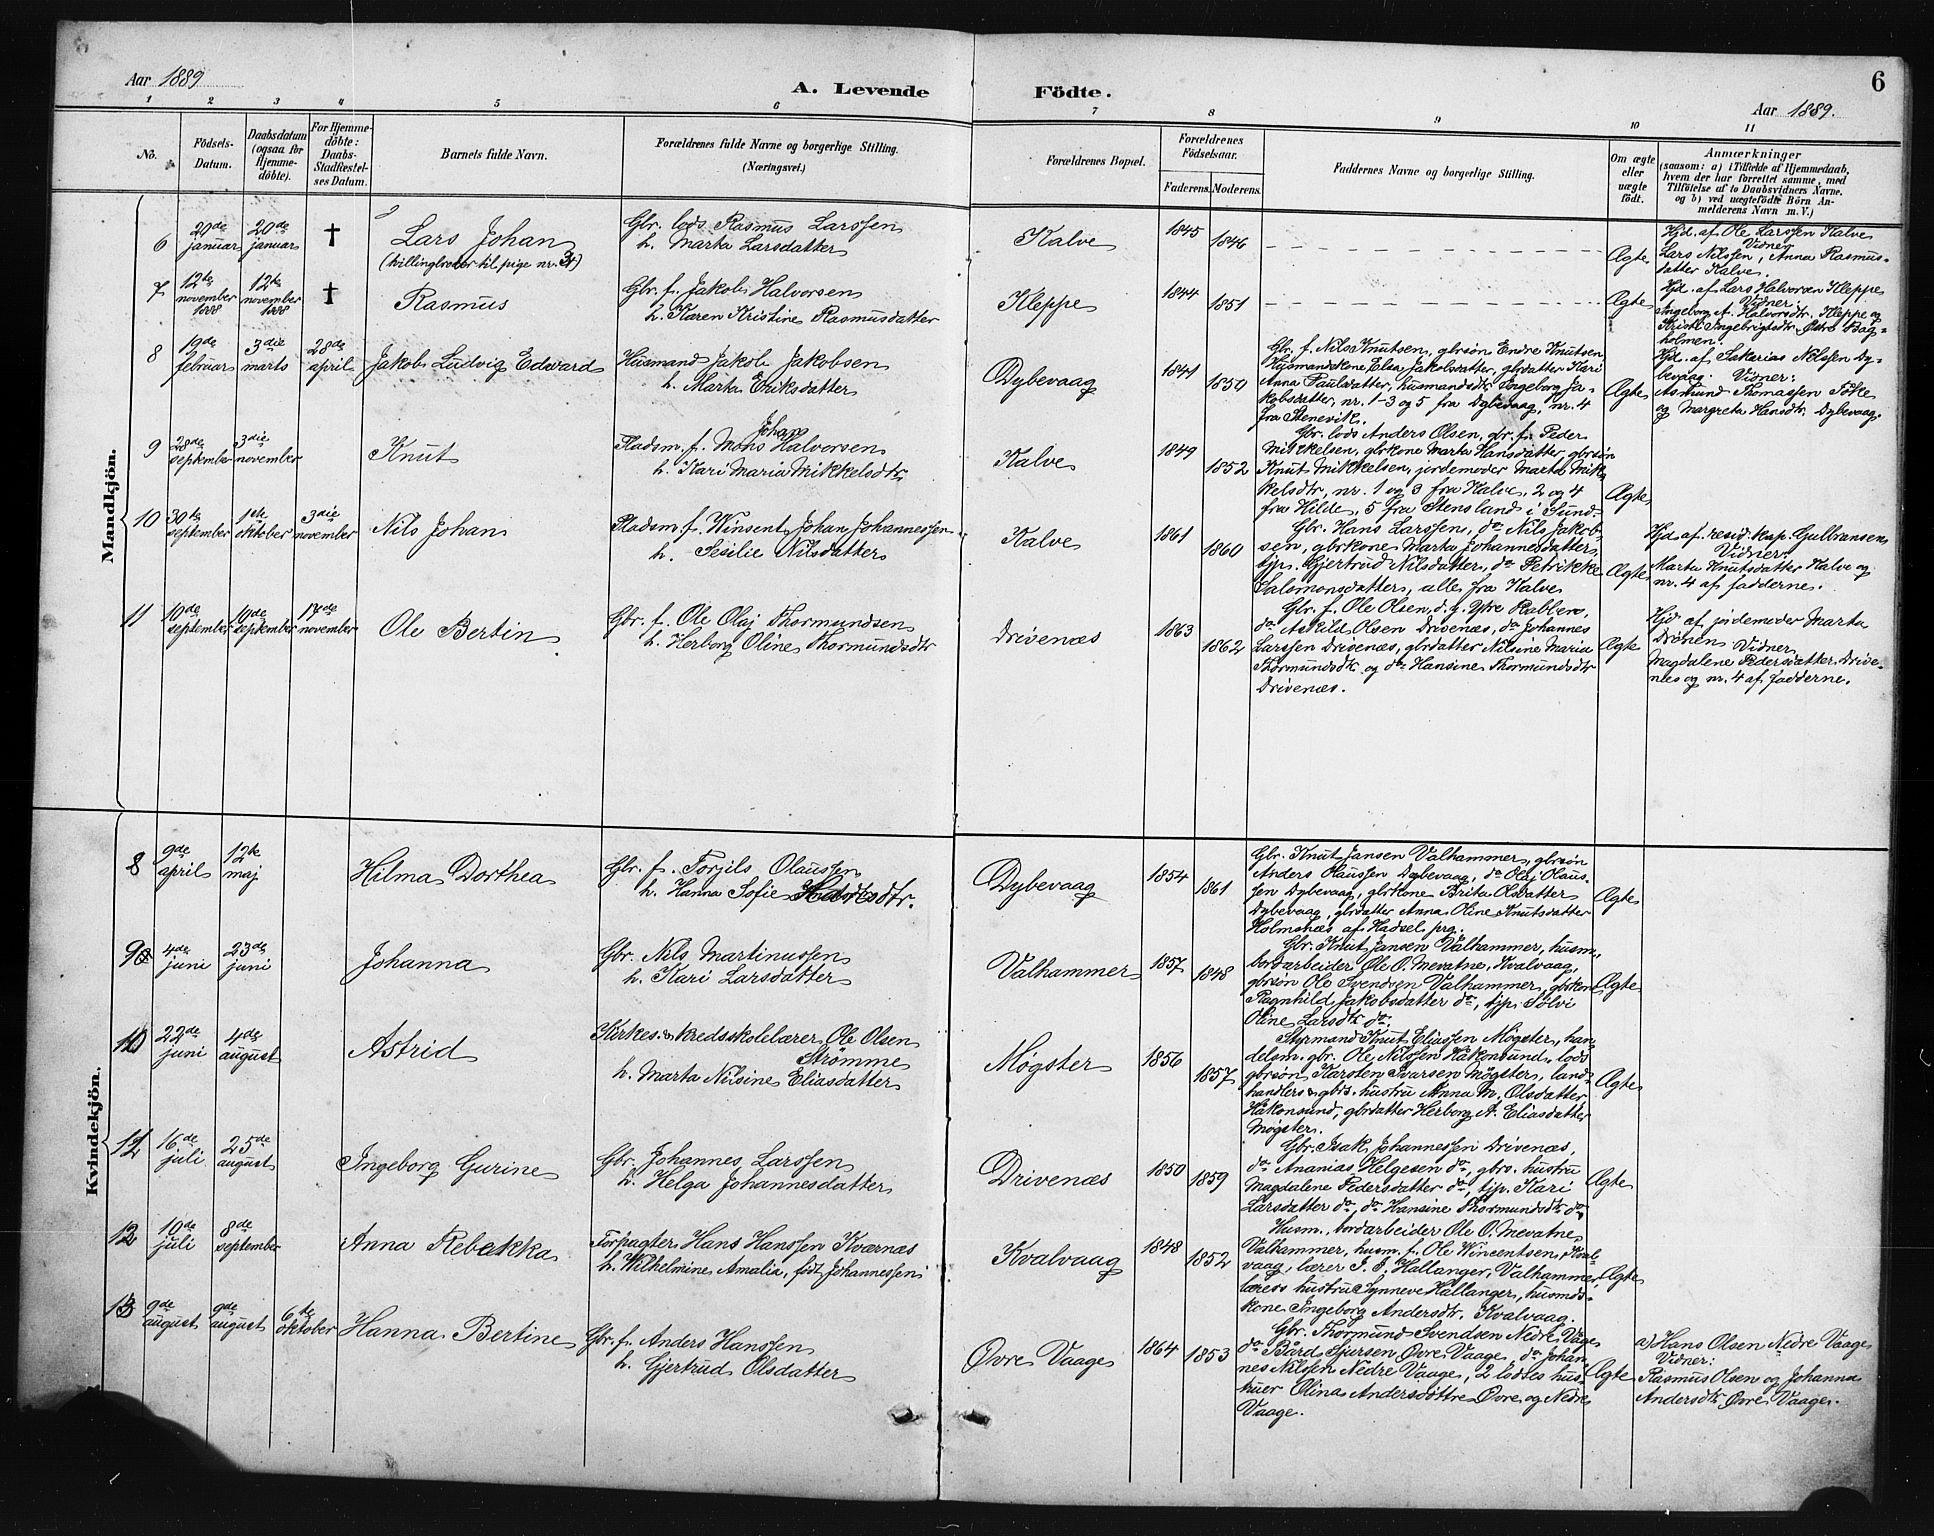 6
Aar 1889
A. Levende Födte.
Aar 1889.
1 2 3 4 5 6 7 8 9 10 11
No.
Födsels-
Datum.
Daabsdatum
(ogsaa for
Hjemme-
döbte).
For Hjemme-
döbte:
Daabs-
Stadfæstel-
ses Datum.
Barnets fulde Navn.
Forældrenes fulde Navne og borgerlige Stilling.
(Næringsvei.)
Forældrenes Bopæl.
Forældrenes
Födselsaar.
Faderens. Moderens.
Faddernes Navne og borgerlige Stilling.
Om ægte
eller
uægte
født.
Anmærkninger
(saasom: a) i Tilfælde af Hjemmedaab,
hvem der har forrettet samme, med
Tilføielse af to Daabsvidners Navne.
og b) ved uægtefödte Börn An-
melderens Navn m. V.)
Mandkjön.
6
20de
januar
20de
januar
†
Lars Johan
(tvillingbroder til pige nr. 3)
Gbr. lods Rasmus Larssen
h. Marta Larsdatter
Kalve
1845
1846
Ægte
Hjd. af Ole Larssen Kalve
Vidner
Lars Nilssen, Anna Rasmus-
datter Kalve.
7
12te
november
1888
12te
november
1888
†
Rasmus
Gbr. f. Jakob Halvorsen
h. Karen Kristine Rasmusdatter
Kleppe
1844
1851
Ægte
Hjd. af Lars Halvorsen Kleppe
Vidner:
Ingeborg A. Halvorsdtr. Kleppe og
Kristi Ingebrigtsdtr. Østre Bag-
holmen.
8
19de
februar
3die
marts
28de
april
Jakob Ludvig Edvard
Husmand Jakob Jakobsen
h. Marta Eriksdatter
Dybevaag
1841
1850
Gbr. f. Nils Knutsen, gbrsøn Endre Knutsen,
Husmandskone Elsa Jakobsdatter, gbrdatter Kari
Anna Paulsdatter, husmandsdtr. Ingeborg Ja-
kobsdatter, nr. 1-3 og 5 fra Dybevaag, nr. 4
fra Stenevik.
Ægte
Hjd. af Sakarias Nilssen Dy-
bevaag. Vidner:
Asmund Thomassen Føke
og Margreta Hansdtr. Dybevaag.
9
28de
september
3die
november
Knut
Johan
Pladsm. f. Mons Halvorsen
h. Kari Maria Mikkelsdtr
Kalve
1849
1852
Gbr. lods Anders Olsen, gbr. f. Peder
Mikkelsen, gbrkone Marta Hansdatter, gbrsøn
Knut Mikkelsen, jordemoder Marta Mik-
kelsdtr, nr. 1 og 3 fra Kalve, 2 og 4
fra Hilde, 5 fra Stensland i Sund.
Ægte
10
30te
september
1ste
oktober
3die
november
Nils Johan
Pladsm. f. Winsent Johan Johannessen
h. Sisilie Nilsdatter
Kalve
1861
1860
Gbr. Hans Larssen, do Nils Jakob-
sen, gbrkone Marta Johannesdatter,
tjp. Gjertrud Nilsdatter, do Petrikke
Salomonsdatter, alle fra Kalve
Ægte
Hjd. af resid. kap. Gulbransen
Vidner:
Marta Knutsdatter Kalve og
nr. 4 af fadderne.
11
19de
september
19de
september
17de
november
Ole Bertin
Gbr. f. Ole Olaj Thormundsen
h. Herborg Oline Thormundsdtr
Drivenæs
1863
1862
Gbr. f. Ole Olsen d. y. Ytre Rabben,
do Askild Olsen Drivenæs, do Johannes
Larssen Drivenæs, gbrdatter Nilsine Maria
Thormundsdtr og do Hansine Thormundsdtr
Drivenæs.
Ægte
Hjd af jordemoder Marta
Drønen Vidner
Magdalene Pedersdatter Drive-
næs og nr. 4 af fadderne.
Kvindekjön.
8
9de
april
12te
maj
Hilma Dorthea
Gbr. f. Torjils Olaussen
h. Hanna Sofie
Dybevaag
1854
1861
Gbr. Knut Jansen Valhammer, gbrsøn
Anders Olaussen Dybevaag, do Olaj Olaus-
sen Dybevaag, gbrkone Brita Olsdatter
Dybevaag, gbrdatter Anna Oline Knutsdatter
Holmsnes af Hadsel prg.
Ægte
9
4de
juni
23de
juni
Johanna
Gbr. Nils Martinussen
h. Kari Larsdatter
Valhammer
1857
1848
Gbr. Knut Jansen Valhammer, husm.
jordarbeider Ole O. Mevatne, Kvalvaag,
gbrsøn Ole Svendsen Valhammer, gbrkone
Ragnhild Jakobsdatter do, tjp. Sølvi
Oline Larsdtr do.
Ægte
10
22de
juni
4de
august
Astrid
Kirkes. & kredsskolelærer Ole Olsen
Strømme
h. Marta Nilsine Eliasdatter
Møgster
1856
1857
Styrmand Knut Eliassen Møgster, han-
delsm. gbr. Ole Nilssen Håkonsund, lods
gbrsøn Karsten Ivarsen Møgster, land-
handlers & gbrs. hustru Anna M. Olsdatter
Håkonsund, gbrdatter Herborg A. Eliasdatter
Møgster.
Ægte
11
16de
juli
25de
august
Ingeborg Gurine
Gbr. Johannes Larssen
h. Helga Johannesdatter
Drivenæs
1850
1859
Gbr. Isak Johannessen Drivenæs,
do Ananias Helgesen do, gbrs. hustru
Magdalene Pedersdatter do, tjp. Kari
Larsdatter do, do Hansine Thormundsdtr do
Ægte
12
10de
juli
8de
september
Anna Rebekka
Forpagter Hans Hanssen Kværnæs
h. Wilhelmine Amalia, født Johannessen
Kvalvaag
1848
1852
Husm. jordarbeider Ole O. Mevatne
Valhammer, husm. f. Ole Wincentsen, Kval-
vaag, lærer J. J. Hallanger, Valhammer,
lærers hustru Synneve Hallanger, husmds-
kone Ingeborg Andersdtr. Kvalvaag.
Ægte
13
9de
august
9de
august
6te
oktober
Hanna Bertine
Gbr. f. Anders Hanssen
h. Gjertrud Olsdatter
Øvre Vaage
1864
1853
Gbr. Thormund Svendsen Nedre Vaage
do Bård Sjursen Øvre Vaage, do Johan-
nes Nilssen Nedre Vaage, 2 lodses hus-
truer Olina Andersdøttre Øvre og Nedre
Vaage.
Ægte
a) Hans Olsen Nedre Vaage
Vidner:
Rasmus Olsen og Johanna
Andersdtr. Øvre Vaage.